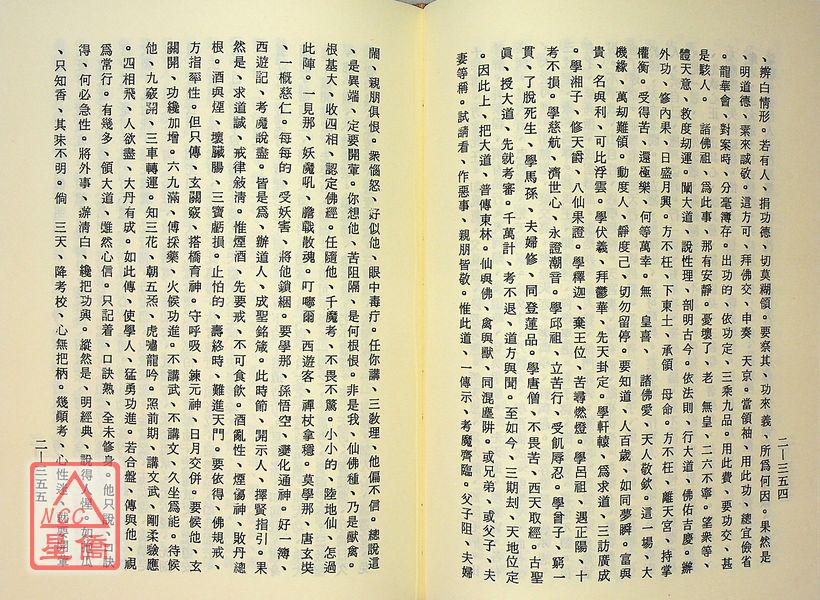 二—三五四
、辦白情形。若有人、捐功德、切莫糊領。要察其、功來義、所為何因。果然是
、明道德、素來誠敬。這方可、拜佛交、申奏 天京。當領袖、用此功、總宜儉省
。龍華會、對案時、分毫薄存。出功的、依功定、三乘九品。用此費、要功交、甚
是駭人。 諸佛祖、為此事、那有安靜。憂壞了 老 無皇、二六不寧。望衆等、
體天意、救度刧運。闡大道、說性理、剖明古今。依法則、行大道、佛佑吉慶。辦
外功、修內果、日盛月興。方不枉、下東土、承領 母命。方不枉、離天宮、持掌
權衡。受得苦、還極樂、何等萬幸。無 皇喜、 諸佛愛、天人敬欽。這一場、大
機緣、萬刧難領。動度人、靜度己、切勿留停。要知道、人百歲、如同夢瞬。富與
貴、名與利、可比浮雲。學伏義、拜鬱華、先天卦定。學軒轅、為求道、三訪廣成
。學湘子、修天爵、八仙果證。學釋迦、棄王位、苦尋燃燈。學呂祖、遇正陽、十
考不損。學慈航、濟世心、永證潮音。學邱祖、立苦行、受飢辱忍。學曾子、窮一
貫、了脫死生。學馬孫、夫婦修、同登蓮品。學唐僧、不畏苦、西天取經。古聖
眞、授大道、先就考審。千萬計、考不退、道方與聞。至如今、三期刦、天地位定
。因此上、把大道、普傳東林。仙與佛、禽與獸、同混塵阱。或兄弟、或父子、夫
妻等稱。試請看、作惡事、親朋皆敬。惟此道、一傳示、考魔齊臨。父子阻、夫婦
鬧、親朋俱恨。衆惱怒、好似他、眼中毒疔。任你講、三教理、他偏不信。總說這
、是異端、定要開葷。你想他、苦阻隔、是何根恨。非是我、仙佛種、乃是獸禽。
根基大、收四相、認定佛經。任隨他、千魔考、不畏不驚。小小的、陸地仙、怎過
此陣。一見那、妖魔吼、膽戰散魂。叮嚀爾、西遊客、禪杖拿穩。莫學那、唐玄奘
、一概慈仁。每每的、受妖害、將他鎖綑。要學那、孫悟空、變化通神。好一簿、
西遊記、考魔說盡。皆是為、辦道人、成聖銘箴。此時節、開示人、擇賢指引。果
然是、求道誠、戒律敍清。惟煙酒、先要戒、不可食飲。酒亂性、煙傷神、敗丹總
根。酒與煙、壞臟腸、三寶虧損。止怕的、壽終時、難進天門。要依得、佛規戒、
方指率性。但只傳、玄關竅、搭橋育神。守呼吸、鍊元神、日月交併。要候他、玄
關開、功纔加增。六九滿、傳採藥、火候功進。不講武、不講文、久坐為能。待候
他、九竅開、三車轉運。知三花、朝五炁、虎嘯龍吟。照前期、講文武、剛柔驗應
。四相飛、人欲盡、大丹有成。如此傳、使學人、猛勇功進。若合盤、傳與他、視
為常行。有幾多、領大道、雖然心信。只記着、口訣熟、全未修身。他只說、口訣
得、何必急性。將外事、辦淸白、纔把功興。縱然是、明經典、說得人惺。如瓜
、只知香、其味不明。倘 三天、降考校、心無把柄。幾顛考、心性迷、
二—三五五
NCC
星僑